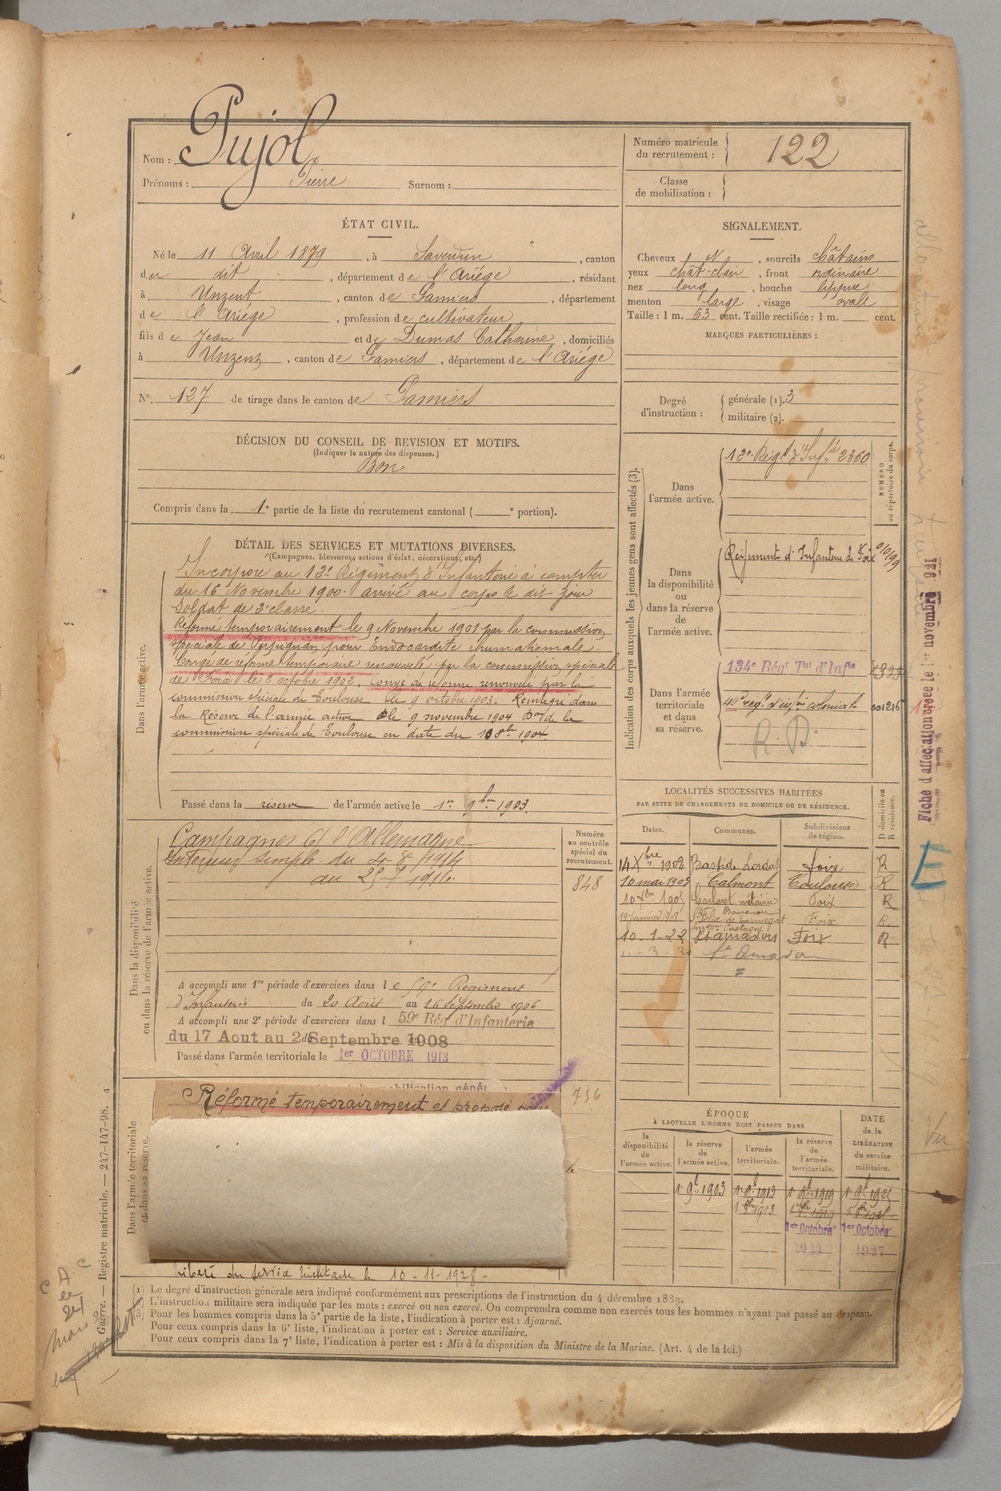 Nom : Pujol
Prénoms : Pierre Surnom :
Numéro matricule du recrutement : 122
Classe de mobilisation :
ÉTAT CIVIL.
Né le 11 Avril 1879, à Saverdun, canton
du dit, département de l'Ariège, résidant
à Unzent, canton de Pamiers, département
de l'Ariège, profession de cultivateur
fils de Jean et de Dumas Catherine, domiciliés
à Unzent, canton de Pamiers, département de l'Ariège
N° 127 de tirage dans le canton de Pamiers
SIGNALEMENT.
Cheveux N, sourcils châtains
yeux chât-clair, front ordinaire
nez long, bouche lippue
menton large, visage ovale
Taille : 1 m. 63 cent. Taille rectifiée : 1 m. cent.
MARQUES PARTICULIÈRES :
Degré d'instruction : générale (1). 3
militaire (2).
DÉCISION DU CONSEIL DE REVISION ET MOTIFS.
(Indiquer la nature des dispenses.)
Bon
Compris dans la 1e partie de la liste du recrutement cantonal ( e portion).
DÉTAIL DES SERVICES ET MUTATIONS DIVERSES.
(Campagnes, blessures, actions d'éclat, décorations, etc.)
Dans l'armée active.
Incorporé au 12e Régiment d'Infanterie à compter
du 16 Novembre 1900. arrivé au corps le dit jour
Soldat de 2e classe.
Réformé temporairement le 9 Novembre 1901 par la commission
spéciale de Perpignan pour Endocardite rhumatismale.
Congé de réforme temporaire renouvelé par la commission spéciale
de Foix le 3 octobre 1902. Congé de réforme renouvelé par la
commission spéciale de Toulouse le 9 octobre 1903. Réintégré dans
la Réserve de l'armée active le 9 novembre 1904 Don de la
commission spéciale de Toulouse en date du 8bre 1904
Passé dans la réserve de l'armée active le 1er 9bre 1903.
Indication des corps auxquels les jeunes gens sont affectés (3).
NUMÉRO au répertoire du corps.
Dans l'armée active.
12e Régt d'Infie 2360
Dans la disponibilité ou dans la réserve de l'armée active.
Régiment d'Infanterie de Foix
Dans l'armée territoriale et dans sa réserve.
134e Régt Tal d'Infie
4e régt d'infie coloniale 001216
R. D.
Fiche d'affectation
novembre 1921
LOCALITÉS SUCCESSIVES HABITÉES
PAR SUITE DE CHANGEMENTS DE DOMICILE OU DE RÉSIDENCE.
Dates. Communes. Subdivisions de région. D domicile ou R résidence.
14 Xbre 1902 Bastide Lordat Foix R
10 mai 1903 Calmont Toulouse R
10 Xbre 1905 Foix R
Foix R
10-1-22 St Amadou Foix R
St Amadou
Dans la disponibilité ou dans la réserve de l'armée active.
Campagnes Ct l'Allemagne
Intérieur simple du 4-8-1914
au 25-7-1916.
Numéro au contrôle spécial du recrutement.
848
A accompli une 1re période d'exercices dans le 59e Régiment
d'Infanterie du 20 Août au 16 Septembre 1906
A accompli une 2e période d'exercices dans l 59e Rég d'Infanterie
du 17 Aout au 2 Septembre 1908
Passé dans l'armée territoriale le 1er OCTOBRE 1913
756
Dans l'armée territoriale et dans sa réserve.
Réformé temporairement et proposé pour
Libéré du service militaire le 10-11-1928-
ÉPOQUE
À LAQUELLE L'HOMME DOIT PASSER DANS
la disponibilité de l'armée active. la réserve de l'armée active. l'armée territoriale. la réserve de l'armée territoriale. DATE de la LIBÉRATION du service militaire.
1er 9bre 1903
1er Octobre 1er Octobre
1927
(1) Le degré d'instruction générale sera indiqué conformément aux prescriptions de l'instruction du 4 décembre 1889.
L'instruction militaire sera indiquée par les mots : exercé ou non exercé. On comprendra comme non exercés tous les hommes n'ayant pas passé au drapeau.
Pour les hommes compris dans la 5e partie de la liste, l'indication à porter est : Ajourné.
Pour ceux compris dans la 6e liste, l'indication à porter est : Service auxiliaire.
Pour ceux compris dans la 7e liste, l'indication à porter est : Mis à la disposition du Ministre de la Marine. (Art. 4 de la loi.)
Guerre. — Registre matricule. — 247-147-98.